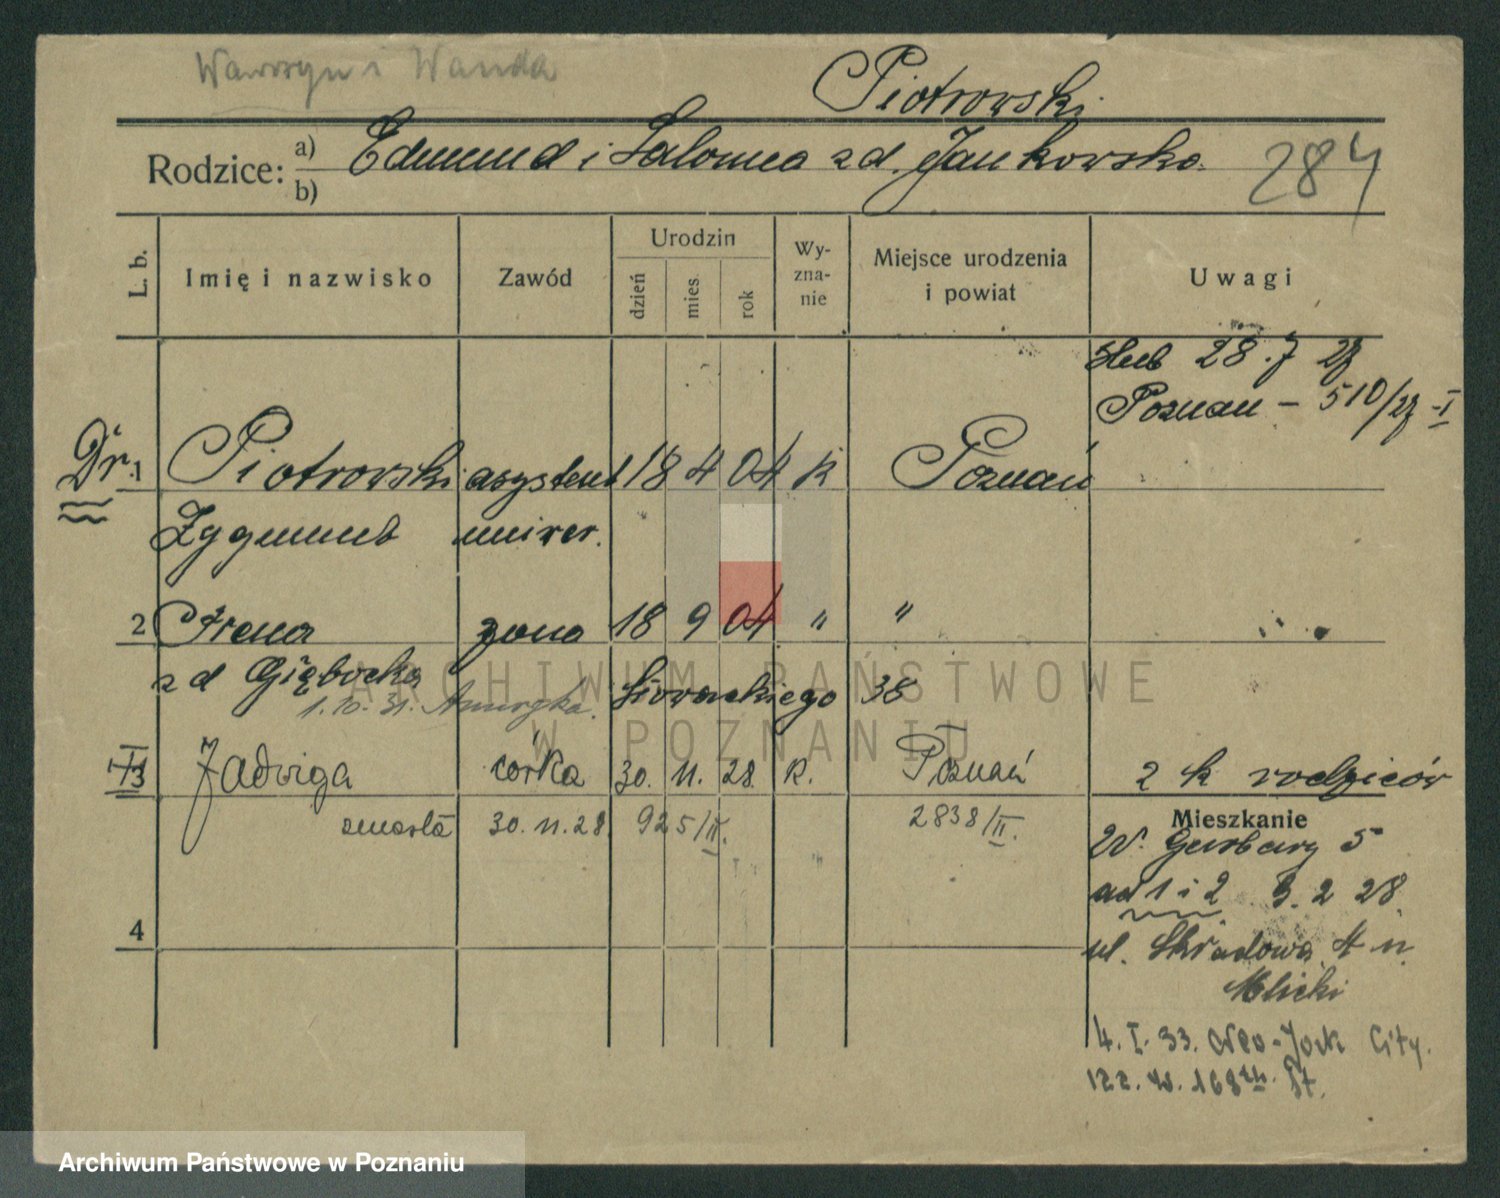 Wawrzyn i Wanda
Piotrowski
Rodzice: a) Edmund i Salomea zd. Jankowska
b)
284
L. b.
Imię i nazwisko
Zawód
Urodzin
dzień
mies.
rok
Wy-
zna-
nie
Miejsce urodzenia
i powiat
Uwagi
ślub 28.7 27
Poznań – 510/27 I
Dr. 1 Piotrowski asystent 18 4 04 k Poznań
Zygmunt uniwer.
2 Irena żona 18 9 04 " "
zd Głębocka Słowackiego 38
1.10.31. Ameryka.
3 Jadwiga córka 30. 11. 28. k. Poznań 2 k rodziców
zmarła 30.11.28 925/II. 2838/II.
Mieszkanie
W. Garbary 5
ad 1 i 2 3. 2 28
4
ul. Składowa 4 n.
Mlicki
4. I. 33. New-York City.
122. W. 168th St.
ARCHIWUM PAŃSTWOWE
W POZNANIU
Archiwum Państwowe w Poznaniu